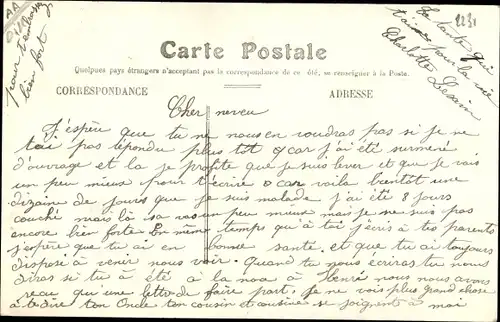 Carte Postale
Quelques pays étrangers n'acceptant pas la correspondance de ce côté, se renseigner à la Poste.
CORRESPONDANCE
ADRESSE
Cher neveu
J'espère que tu ne nous en voudras pas si je ne
t'ai pas répondu plus tot car j'ai été surmené
d'ouvrage et la je profite que je suis lever et que je vais
un peu mieux pour t'écrire car voila bientôt une
dizaine de jours que je suis malade j'ai été 8 jours
couché mais là sa va un peu mieux mais je ne suis pas
encore bien forte En même temps qu'à toi j'écris à tes parents
j'espère que tu ai en bonne santé, et que tu ai toujours
disposé à venir nous voir. Quand tu nous écriras tu nous
diras si tu à été à la noce à Henri nous nous avons
recu qu'une lettre de faire part. Je ne vois plus grand chose
à te dire ton Oncle ton cousin et cousine se joignent à moi
pour t'embrasser
bien fort
Ta tante qui
t'aime pour la vie
Charlotte